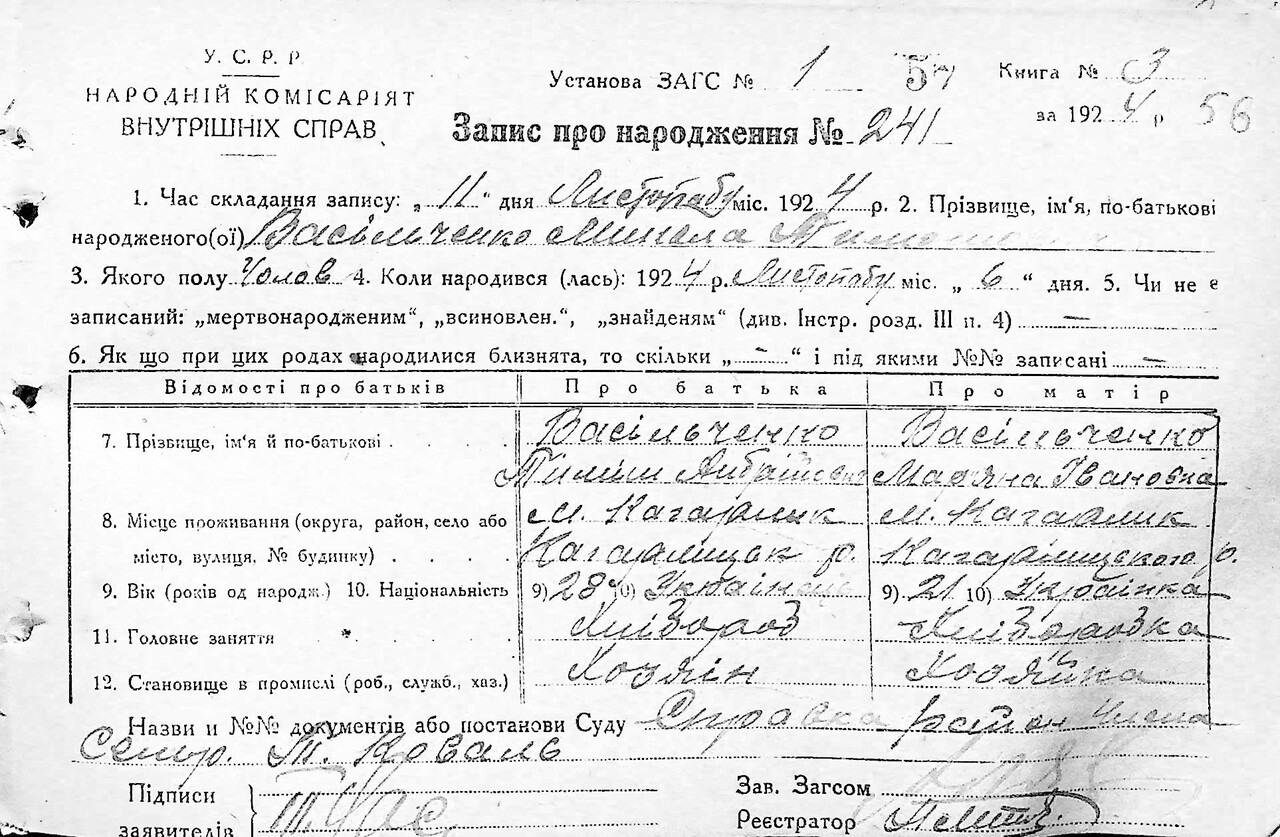 У. С. Р. Р
НАРОДНІЙ КОМІСАРІЯТ
ВНУТРІШНІХ СПРАВ
Установа ЗАГС № 1 57 Книга № 3
за 1924 р 56
Запис про народження № 241
1. Час складання запису: „11“ дня Листопаду міс. 1924 р. 2. Прізвище, ім'я, по-батькові
народженого(ої) Васільченко Микола
3. Якого полу Чолов 4. Коли народився (лась): 1924 р. Листопаду міс. „6“ дня. 5. Чи не є
записаний: „мертвонародженим“, „всиновлен.“, „знайденям“ (див. Інстр. розд. III п. 4) —
6. Як що при цих родах народилися близнята, то скільки „—“ і під якими №№ записані —
Відомості про батьків Про батька Про матір
7. Прізвище, ім'я й по-батькові Васільченко Васільченко
Мар'яна Івановна
8. Місце проживання (округа, район, село або м. Кагарлик м. Кагарлик
місто, вулиця, № будинку) Кагарлицьк р. Кагарлицького р.
9. Вік (років од народж.) 10. Національність 9) 28 10) Українець 9) 21 10) Українка
11. Головне заняття Хлібороб Хліборобка
12. Становище в промислі (роб., служб., хаз.) Хозяїн Хозяйка
Назви и №№ документів або постанови Суду Справка
Т. Коваль
Підписи
заявителів
Зав. Загсом
Реєстратор